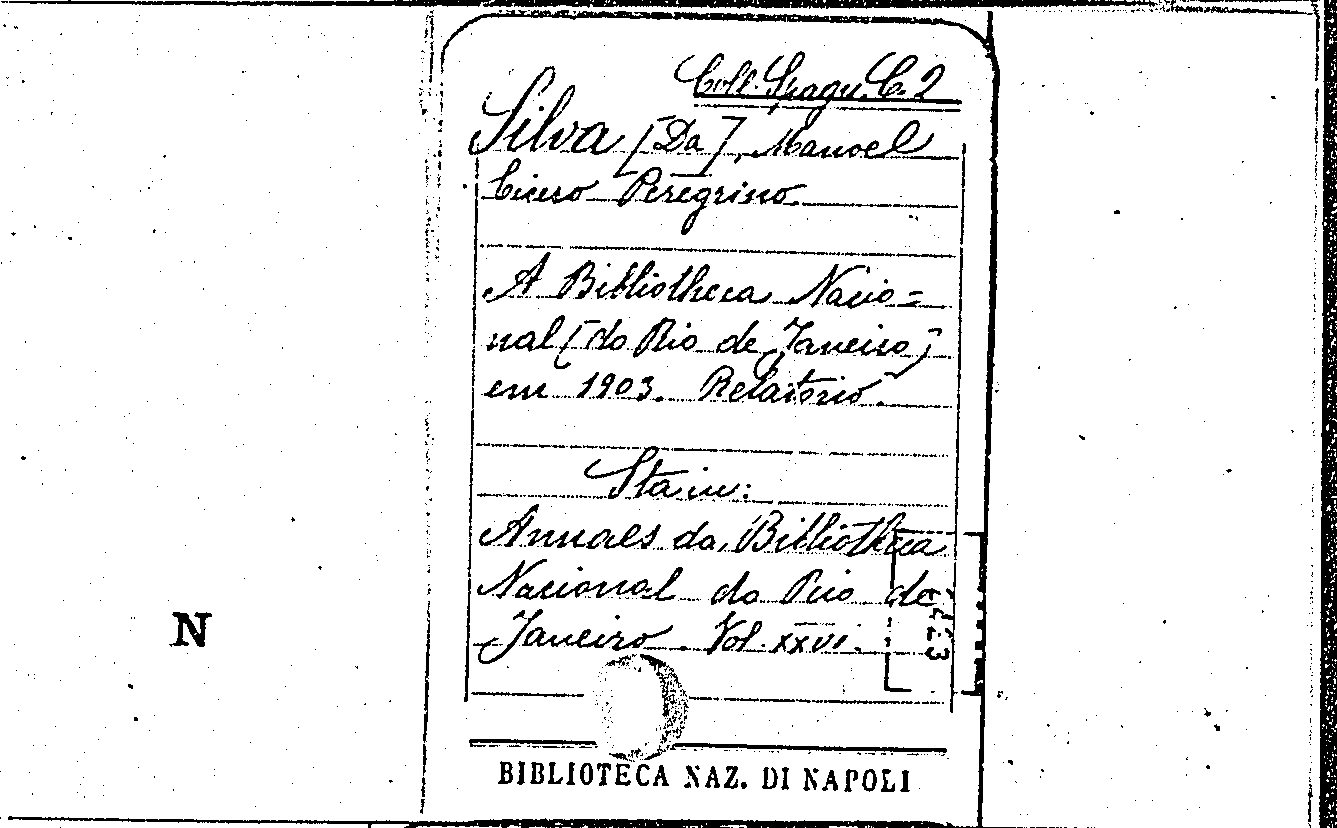 Coll. Spagn. C. 2
Silva [Da], Manoel
Cicero Peregrino.
A Bibliotheca Nacio=
nal [do Rio de Janeiro]
em 1903. Relatorio.
Sta in:
Annaes da Bibliotheca
Nacional do Rio de
Janeiro. Vol. XXVI.
N
BIBLIOTECA NAZ. DI NAPOLI